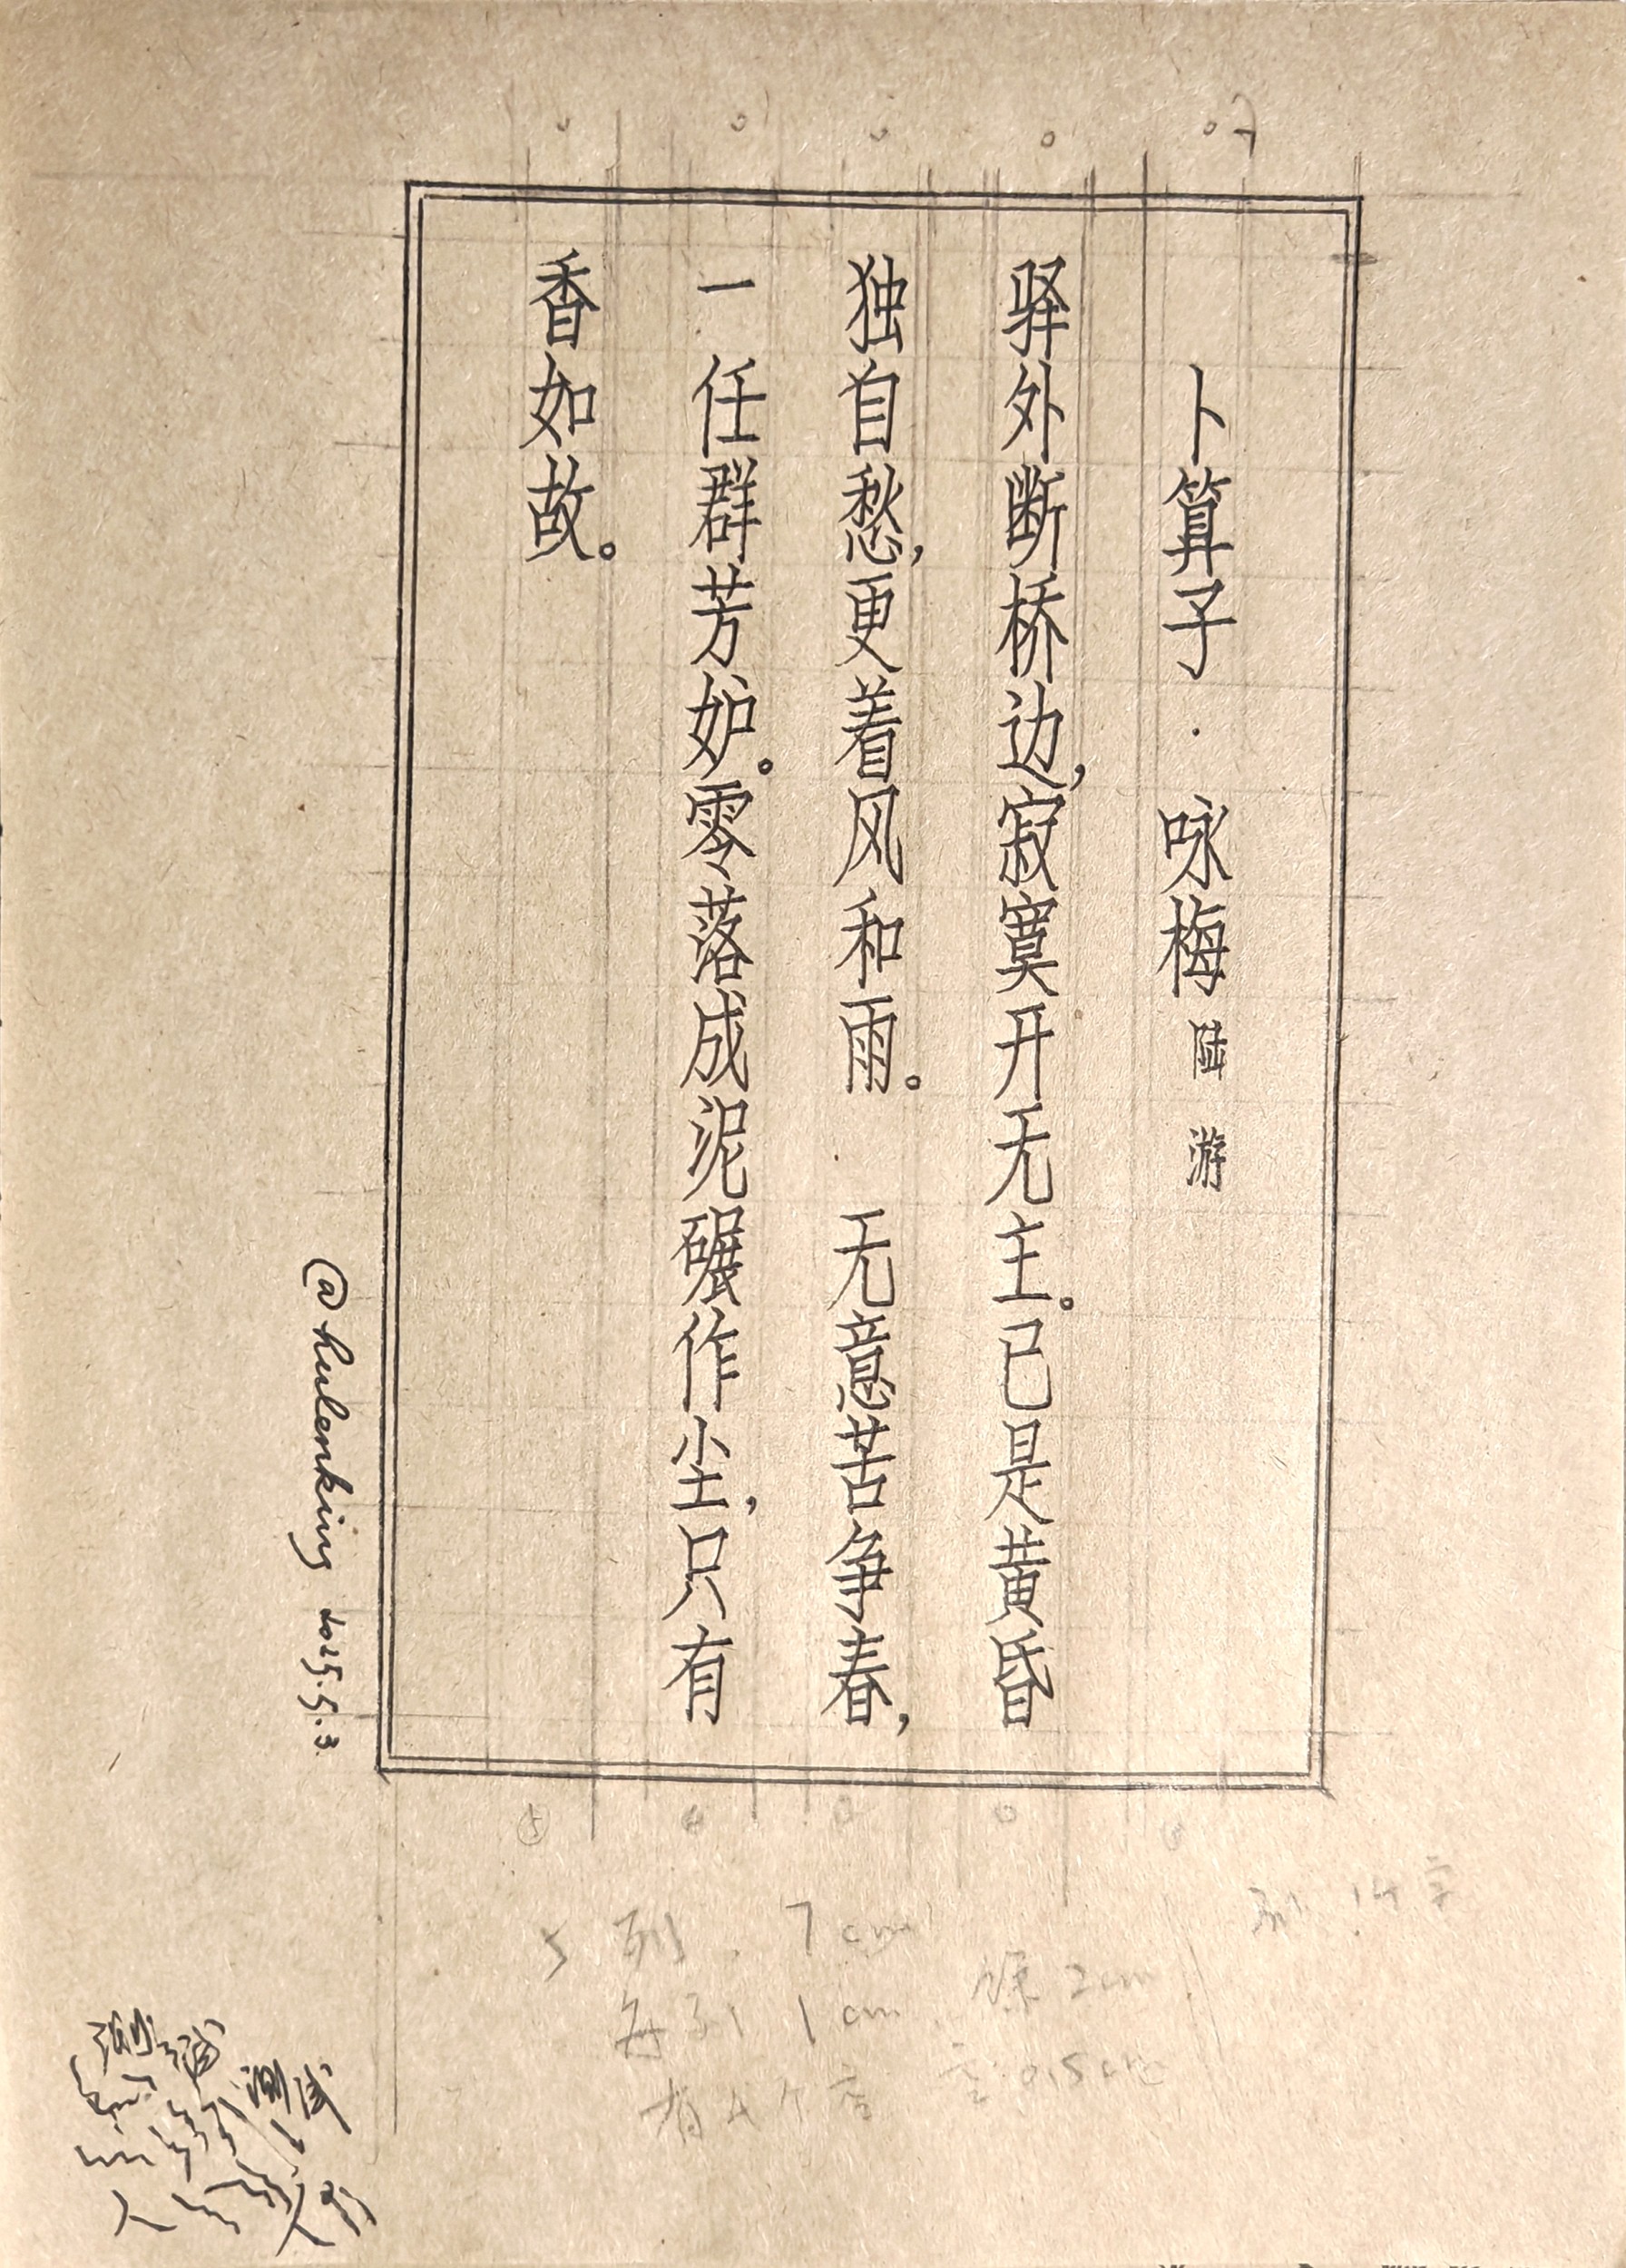 卜算子·咏梅 陆游
驿外断桥边，寂寞开无主。已是黄昏
独自愁，更着风和雨。 无意苦争春，
一任群芳妒。零落成泥碾作尘，只有
香如故。
@hulenking 2025.5.3
5列. 7cm
每列 1cm 余2cm
有4个空 空:0.5cm
列 14字
⑤